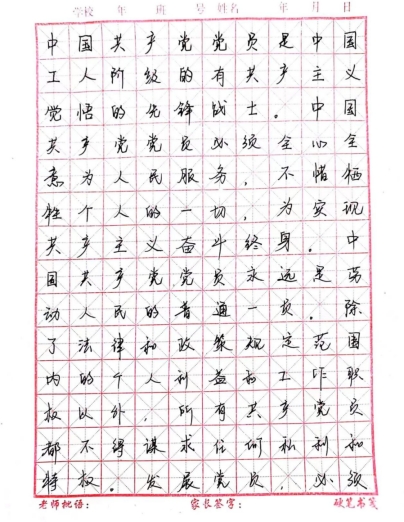 学校 年 班 号 姓名 年 月 日
中国共产党党员是中国
工人阶级的有共产主义
觉悟的先锋战士。中国
共产党党员必须全心全
意为人民服务，不惜牺
牲个人的一切，为实现
共产主义奋斗终身。中
国共产党党员永远是劳
动人民的普通一员。除
了法律和政策规定范围
内的个人利益和工作职
权以外，所有共产党员
都不得谋求任何私利和
特权。发展党员，必须
老师批语： 家长签字： 硬笔书笺